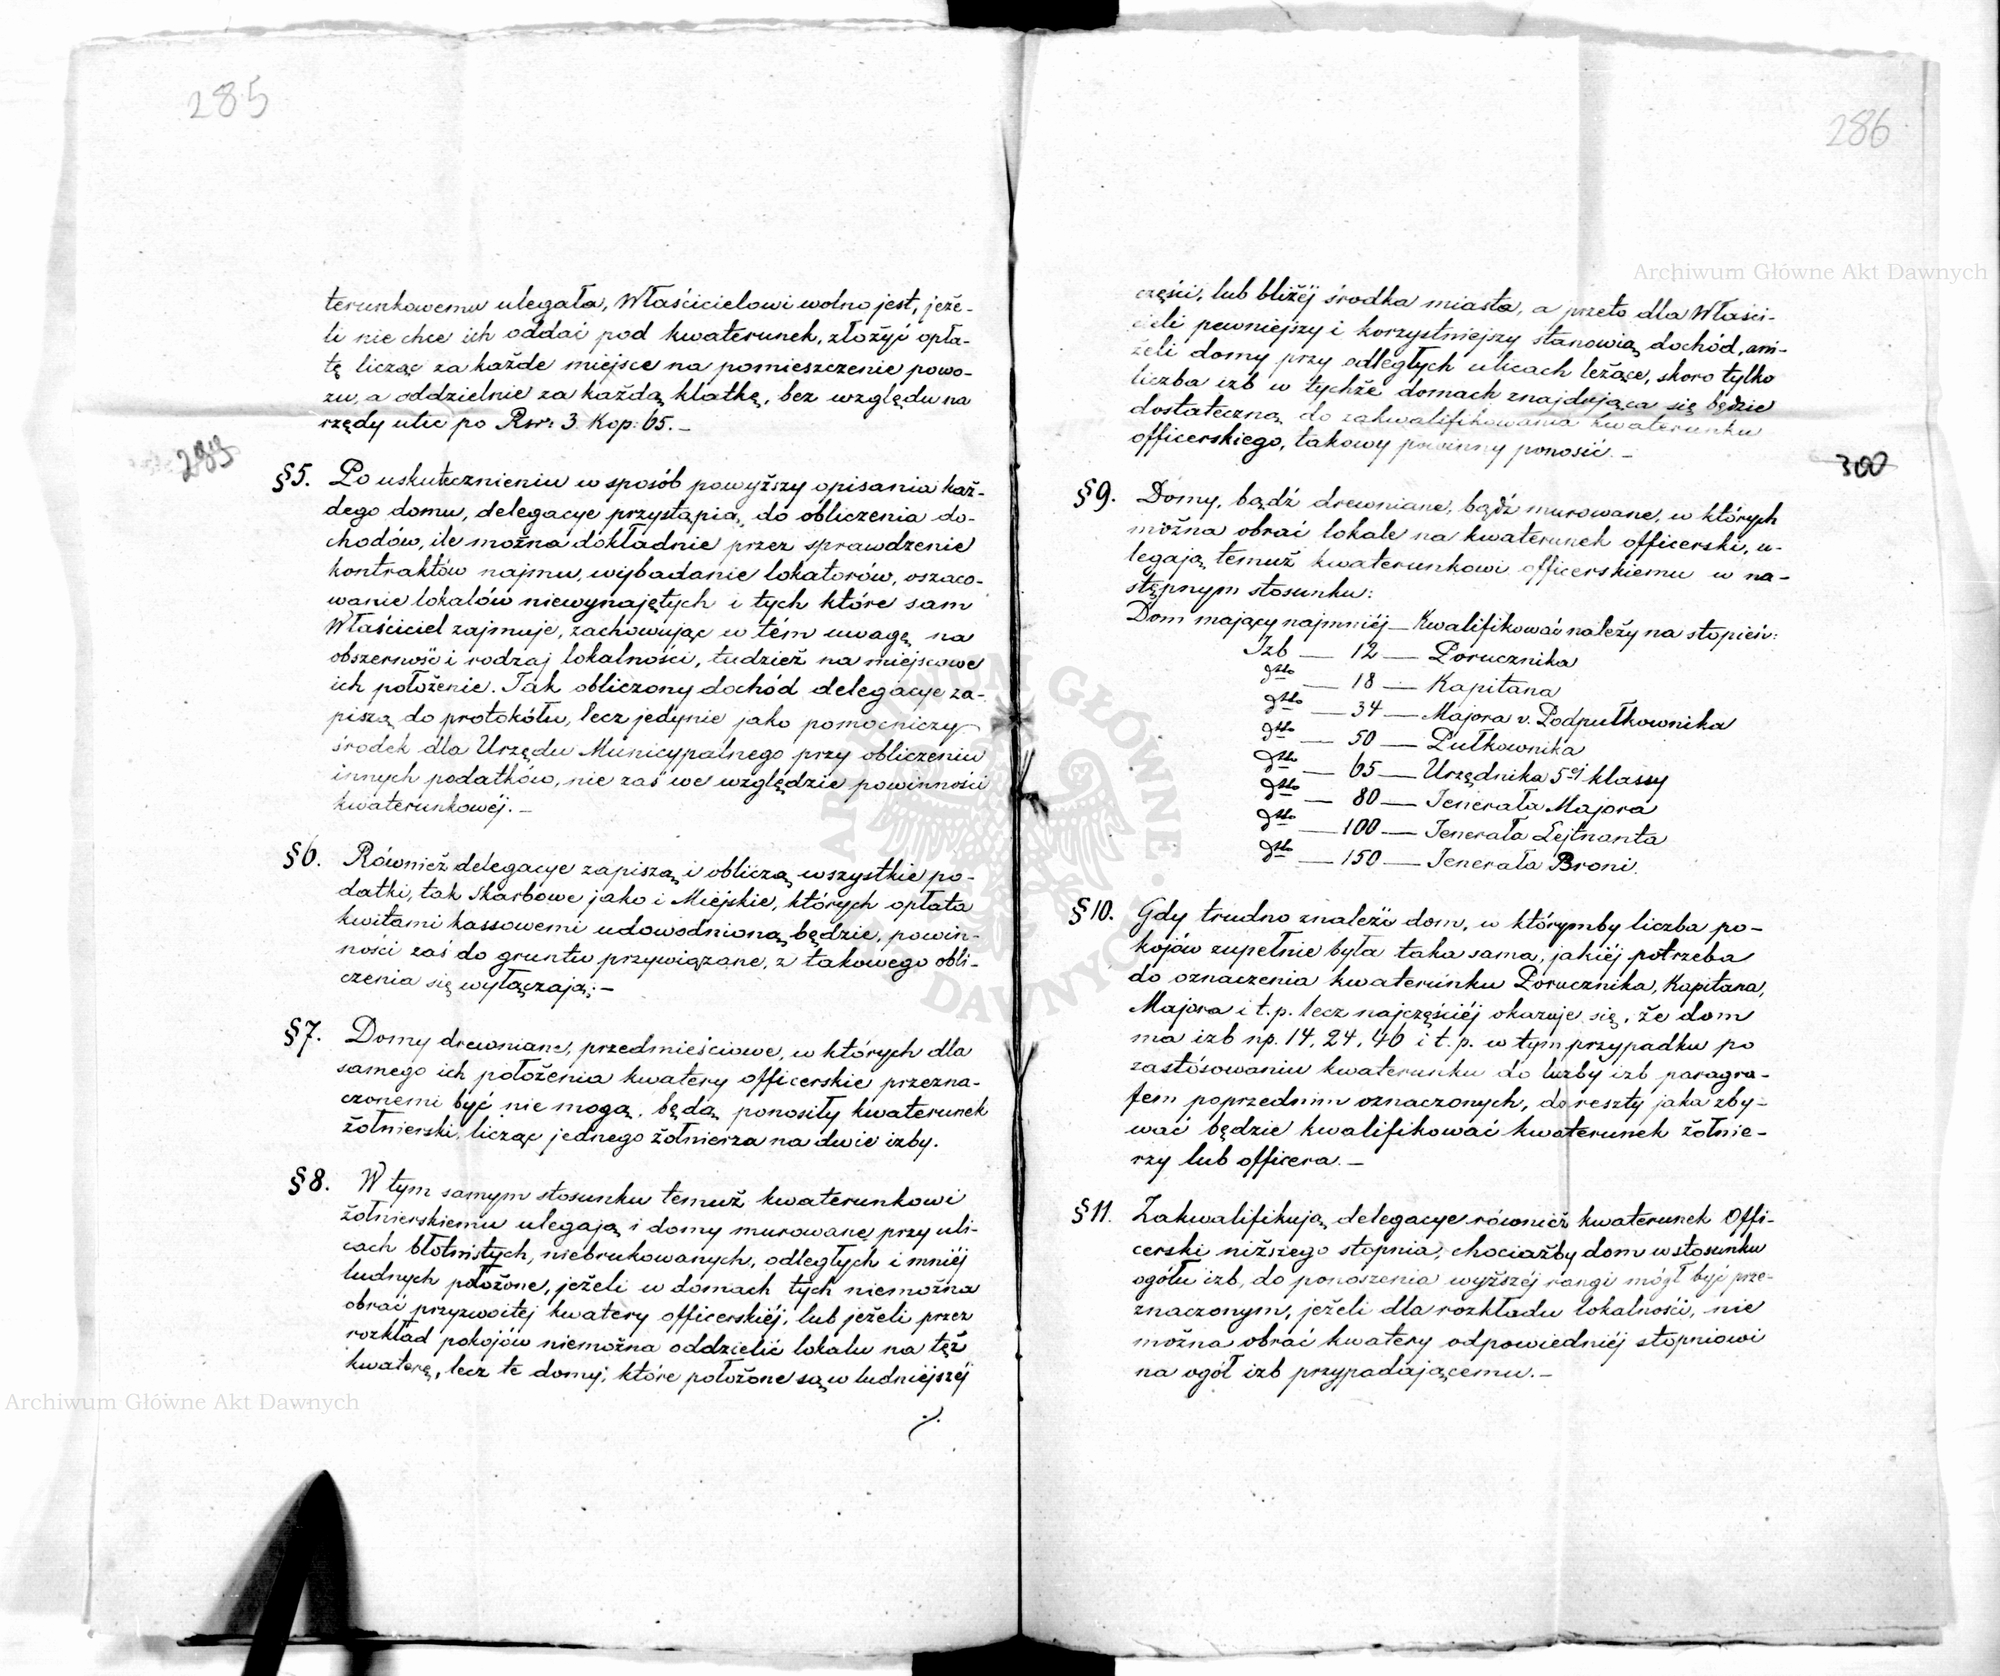 285
299
terunkowemu ulegała, Właścicielowi wolno jest, jeże-
li nie chce ich oddać pod kwaterunek, złożyć opła-
tę licząc za każde miejsce na pomieszczenie powo-
zu, a oddzielnie za każdą klatkę, bez względu na
rzędy ulic po Rsr: 3. Kop: 65. –
§5. Po uskutecznieniu w sposób powyższy opisania każ-
dego domu, delegacye przystąpią, do obliczenia do-
chodów, ile można dokładnie przez sprawdzenie
kontraktów najmu, wybadanie lokatorów, oszaco-
wanie lokalów niewynajętych i tych które sam
Właściciel zajmuje, zachowując w tém uwagę na
obszerność i rodzaj lokalności, tudzież na miejscowe
ich położenie. Tak obliczony dochód delegacye za-
piszą do protokółu, lecz jedynie jako pomocniczy
środek dla Urzędu Municypalnego przy obliczeniu
innych podatków, nie zaś we względzie powinności
kwaterunkowéj. –
§6. Również delegacye zapiszą i obliczą wszystkie po-
datki, tak Skarbowe jako i Miejskie, których opłata
kwitami kassowemi udowodnioną będzie, powin-
ności zaś do gruntu przywiązane, z takowego obli-
czenia się wyłączają; –
§7. Domy drewniane, przedmieściowe, w których dla
samego ich położenia kwatery officerskie przezna-
czonemi być nie mogą, będą ponosiły kwaterunek
żołnierski, licząc jednego żołnierza na dwie izby.
§8. W tym samym stosunku temuż kwaterunkowi
żołnierskiemu ulegają i domy murowane przy uli-
cach błotnistych, niebrukowanych, odległych i mniéj
ludnych położone, jeżeli w domach tych niemożna
obrać przyzwoitéj kwatery officerskiéj, lub jeżeli przez
rozkład pokojów niemożna oddzielić lokalu na téż
kwaterę, lecz te domy, które położone są w ludniejszéj
./.
286
300
części, lub bliżéj środka miasta, a przeto dla Właści-
cieli pewniejszy i korzystniejszy stanowią dochód, ani-
żeli domy przy odległych ulicach leżące, skoro tylko
liczba izb w tychże domach znajdująca się będzie
dostateczną do zakwalifikowania kwaterunku
officerskiego, takowy powinny ponosić. –
§9. Domy, bądź drewniane, bądź murowane, w których
można obrać lokale na kwaterunek officerski, u-
legają temuż kwaterunkowi officerskiemu w na-
stępnym stosunku:
Dom mający najmniéj – Kwalifikować należy na stopień:
Izb — 12 — Porucznika
dtto — 18 — Kapitana
dtto — 34 — Majora v. Podpułkownika
dtto — 50 — Pułkownika
dtto — 65 — Urzędnika 5ej klassy
dtto — 80 — Jenerała Majora
dtto — 100 — Jenerała Lejtnanta
dtto — 150 — Jenerała Broni.
§10. Gdy trudno znaleźć dom, w którymby liczba po-
kojów zupełnie była taka sama, jakiéj potrzeba
do oznaczenia kwaterunku Porucznika, Kapitana,
Majora i t. p. lecz najczęściéj okazuje się, że dom
ma izb np. 14, 24, 46 i t. p. w tym przypadku po
zastósowaniu kwaterunku do liczby izb paragra-
fem poprzednim oznaczonych, do reszty jaka zby-
wać będzie kwalifikować kwaterunek żołnie-
rzy lub officera. –
§11. Zakwalifikują delegacye również kwaterunek Offi-
cerski niższego stopnia, chociażby dom w stosunku
ogółu izb, do ponoszenia wyższéj rangi mógł być prze-
znaczonym, jeżeli dla rozkładu lokalności, nie
można obrać kwatery odpowiedniéj stopniowi
na ogół izb przypadającemu. –
Archiwum Główne Akt Dawnych
Archiwum Główne Akt Dawnych
ARCHIWUM GŁÓWNE AKT DAWNYCH